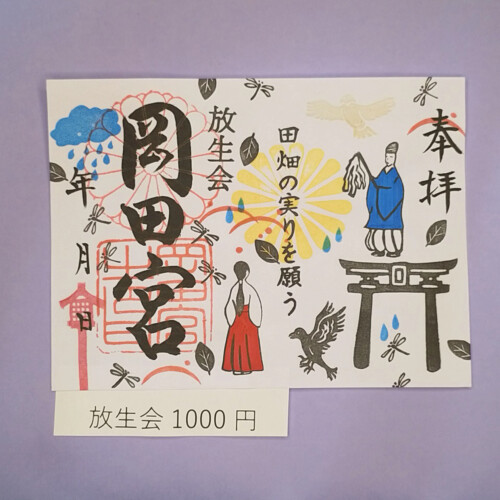 奉拝
田畑の実りを願う
放生会
岡田宮
年月日
放生会 1000 円